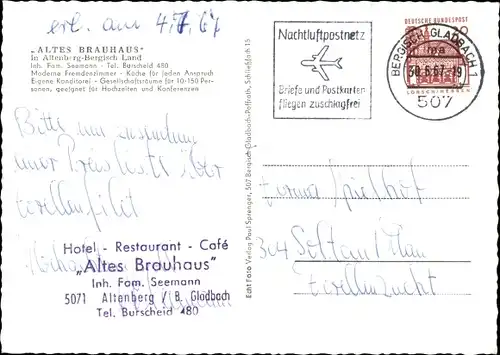 erl. am 4.7.67
„ALTES BRAUHAUS"
in Altenberg-Bergisch Land
Inh. Fam. Seemann - Tel. Burscheid 480
Moderne Fremdenzimmer - Küche für jeden Anspruch
Eigene Konditorei - Gesellschaftsräume für 10-150 Per-
sonen, geeignet für Hochzeiten und Konferenzen
Bitte um zusendung
einer Preisliste über
Forellenfilet
Hotel - Restaurant - Café
„Altes Brauhaus"
Inh. Fam. Seemann
5071 Altenberg / B. Gladbach
Tel. Burscheid 480
Echt Foto Verlag Paul Sprenger, 507 Bergisch Gladbach-Paffrath, Schließfach 15
Nachtluftpostnetz
Briefe und Postkarten
fliegen zuschlagfrei
DEUTSCHE BUNDESPOST
BERGISCH GLADBACH 1
ma
30.6.67.-19
507
LORSCH/HESSEN
Firma
304 Soltau
Forellenzucht